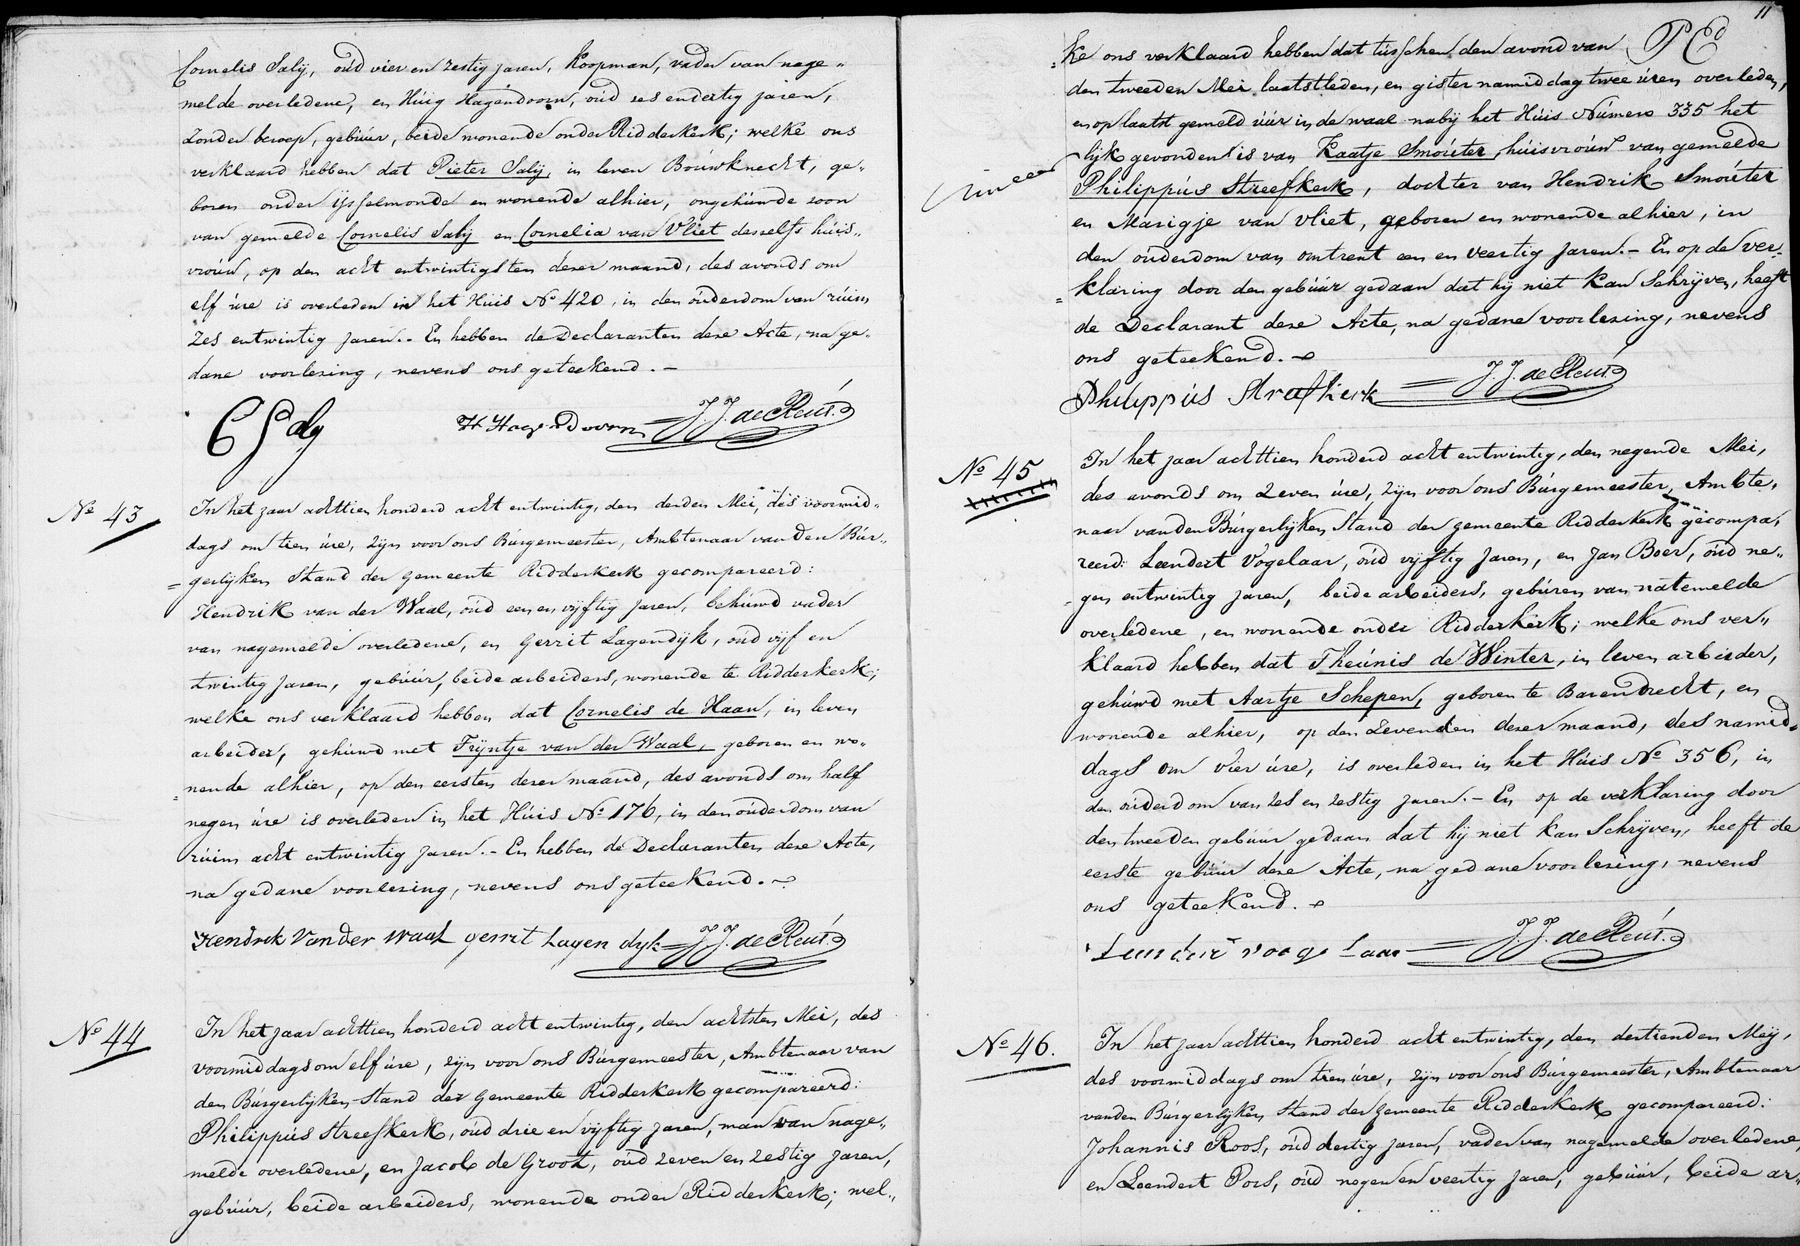 Cornelis Salij, oúd vier en zestig jaren, Koopman, vader van nage„
melde overledene, en Húig Hagendoorn, oúd zes en dertig jaren,
zonder beroep, gebúúr, beide wonende onder Ridderkerk; welke ons
verklaard hebben dat Pieter Salij, in leven Boúwknecht, ge„
boren onder ijsselmonde en wonende alhier, ongehúwde zoon
van gemelde Cornelis Salij en Cornelia van Vliet deszelfs húis„
vroúw, op den acht en twintigsten dezer maand, des avonds om
elf úre is overleden in het Húis No 420, in den oúderdom van rúim
zes en twintig jaren.- En hebben de Declaranten deze Acte, na ge„
dane voorlezing, nevens ons geteekend.-
C Saly H Hagendoorn J. J. de Reús.
No 43
In het jaar achttien honderd acht en twintig, den derden Mei, des voormid„
dags om tien úre, zijn voor ons Burgemeester, Ambtenaar van den Búr„
gerlijken Stand der Gemeente Ridderkerk gecompareerd:
Hendrik van der Waal, oúd een en vijftig jaren, behúwd vader
van nagemelde overledene, en Gerrit Lagendijk, oúd vijf en
twintig jaren, gebúúr, beide arbeiders, wonende te Ridderkerk;
welke ons verklaard hebben dat Cornelis de Haan, in leven
arbeider, gehúwd met Trijntje van der Waal, geboren en wo„
nende alhier, op den eersten dezer maand, des avonds om half
negen úre is overleden in het Húis No 176, in den oúderdom van
rúim acht en twintig jaren.- En hebben de Declaranten deze Acte,
na gedane voorlezing, nevens ons geteekend.-
Hendrik van der Waal gerrit Lagen dijk J. J. de Reús.
No 44
In het jaar achttien honderd acht en twintig, den achtsten Mei, des
voormiddags om elf úre, zijn voor ons Búrgemeester, Ambtenaar van
den Búrgerlijken Stand der Gemeente Ridderkerk gecompareerd:
Philippús Streefkerk, oúd drie en vijftig jaren, man van nage„
melde overledene, en Jacob de Groot, oúd zeven en zestig jaren,
gebúúr, beide arbeiders, wonende onder Ridderkerk; wel„
11
ke ons verklaard hebben dat tússchen den avond van
den tweeden Mei laatstleden, en gister namiddag twee úren overleden,
en op laatst gemeld úúr in de waal nabij het Húis Número 335 het
lijk gevonden is van Kaatje Smoúter, húisvroúw van gemelde
Philippús Streefkerk, dochter van Hendrik Smoúter
en Marigje van Vliet, geboren en wonende alhier, in
den oúderdom van omtrent een en veertig jaren.- En op de ver„
klaring door den gebúúr gedaan dat hij niet kan Schrijven, heeft
de Declarant deze Acte, na gedane voorlezing, nevens
ons geteekend.-
Philippús Strefkerk J. J. de Reús.
No 45
In het jaar achttien honderd acht en twintig, den negende Mei,
des avonds om zeven úre, zijn voor ons Búrgemeester, Ambte„
naar van den Búrgerlijken Stand der Gemeente Ridderkerk gecompa„
reerd: Leendert Vogelaar, oúd vijftig jaren, en Jan Boer, oúd ne„
gen en twintig jaren, beide arbeiders, gebúren van natemelde
overledene, en wonende onder Ridderkerk; welke ons ver„
klaard hebben dat Theúnis de Winter, in leven arbeider,
gehúwd met Aartje Schepen, geboren te Barendrecht, en
wonende alhier, op den Zevenden dezer maand, des namid„
dags om vier úre, is overleden in het Húis No 356, in
den oúderdom van zes en zestig jaren.- En op de verklaring door
den tweeden gebúúr gedaan dat hij niet kan Schrijven, heeft de
eerste gebúúr deze Acte, na gedane voorlezing, nevens
ons geteekend.-
Leendert voogelaar J. J. de Reús.
No 46.
In het jaar achttien honderd acht en twintig, den dertienden Meij,
des voormiddags om tien úre, zijn voor ons Búrgemeester, Ambtenaar
van den Búrgerlijken Stand der Gemeente Ridderkerk gecompareerd:
Johannis Roos, oúd dertig jaren, vader van nagemelde overledene,
en Leendert Pors, oúd negen en veertig jaren, gebúúr, beide ar„